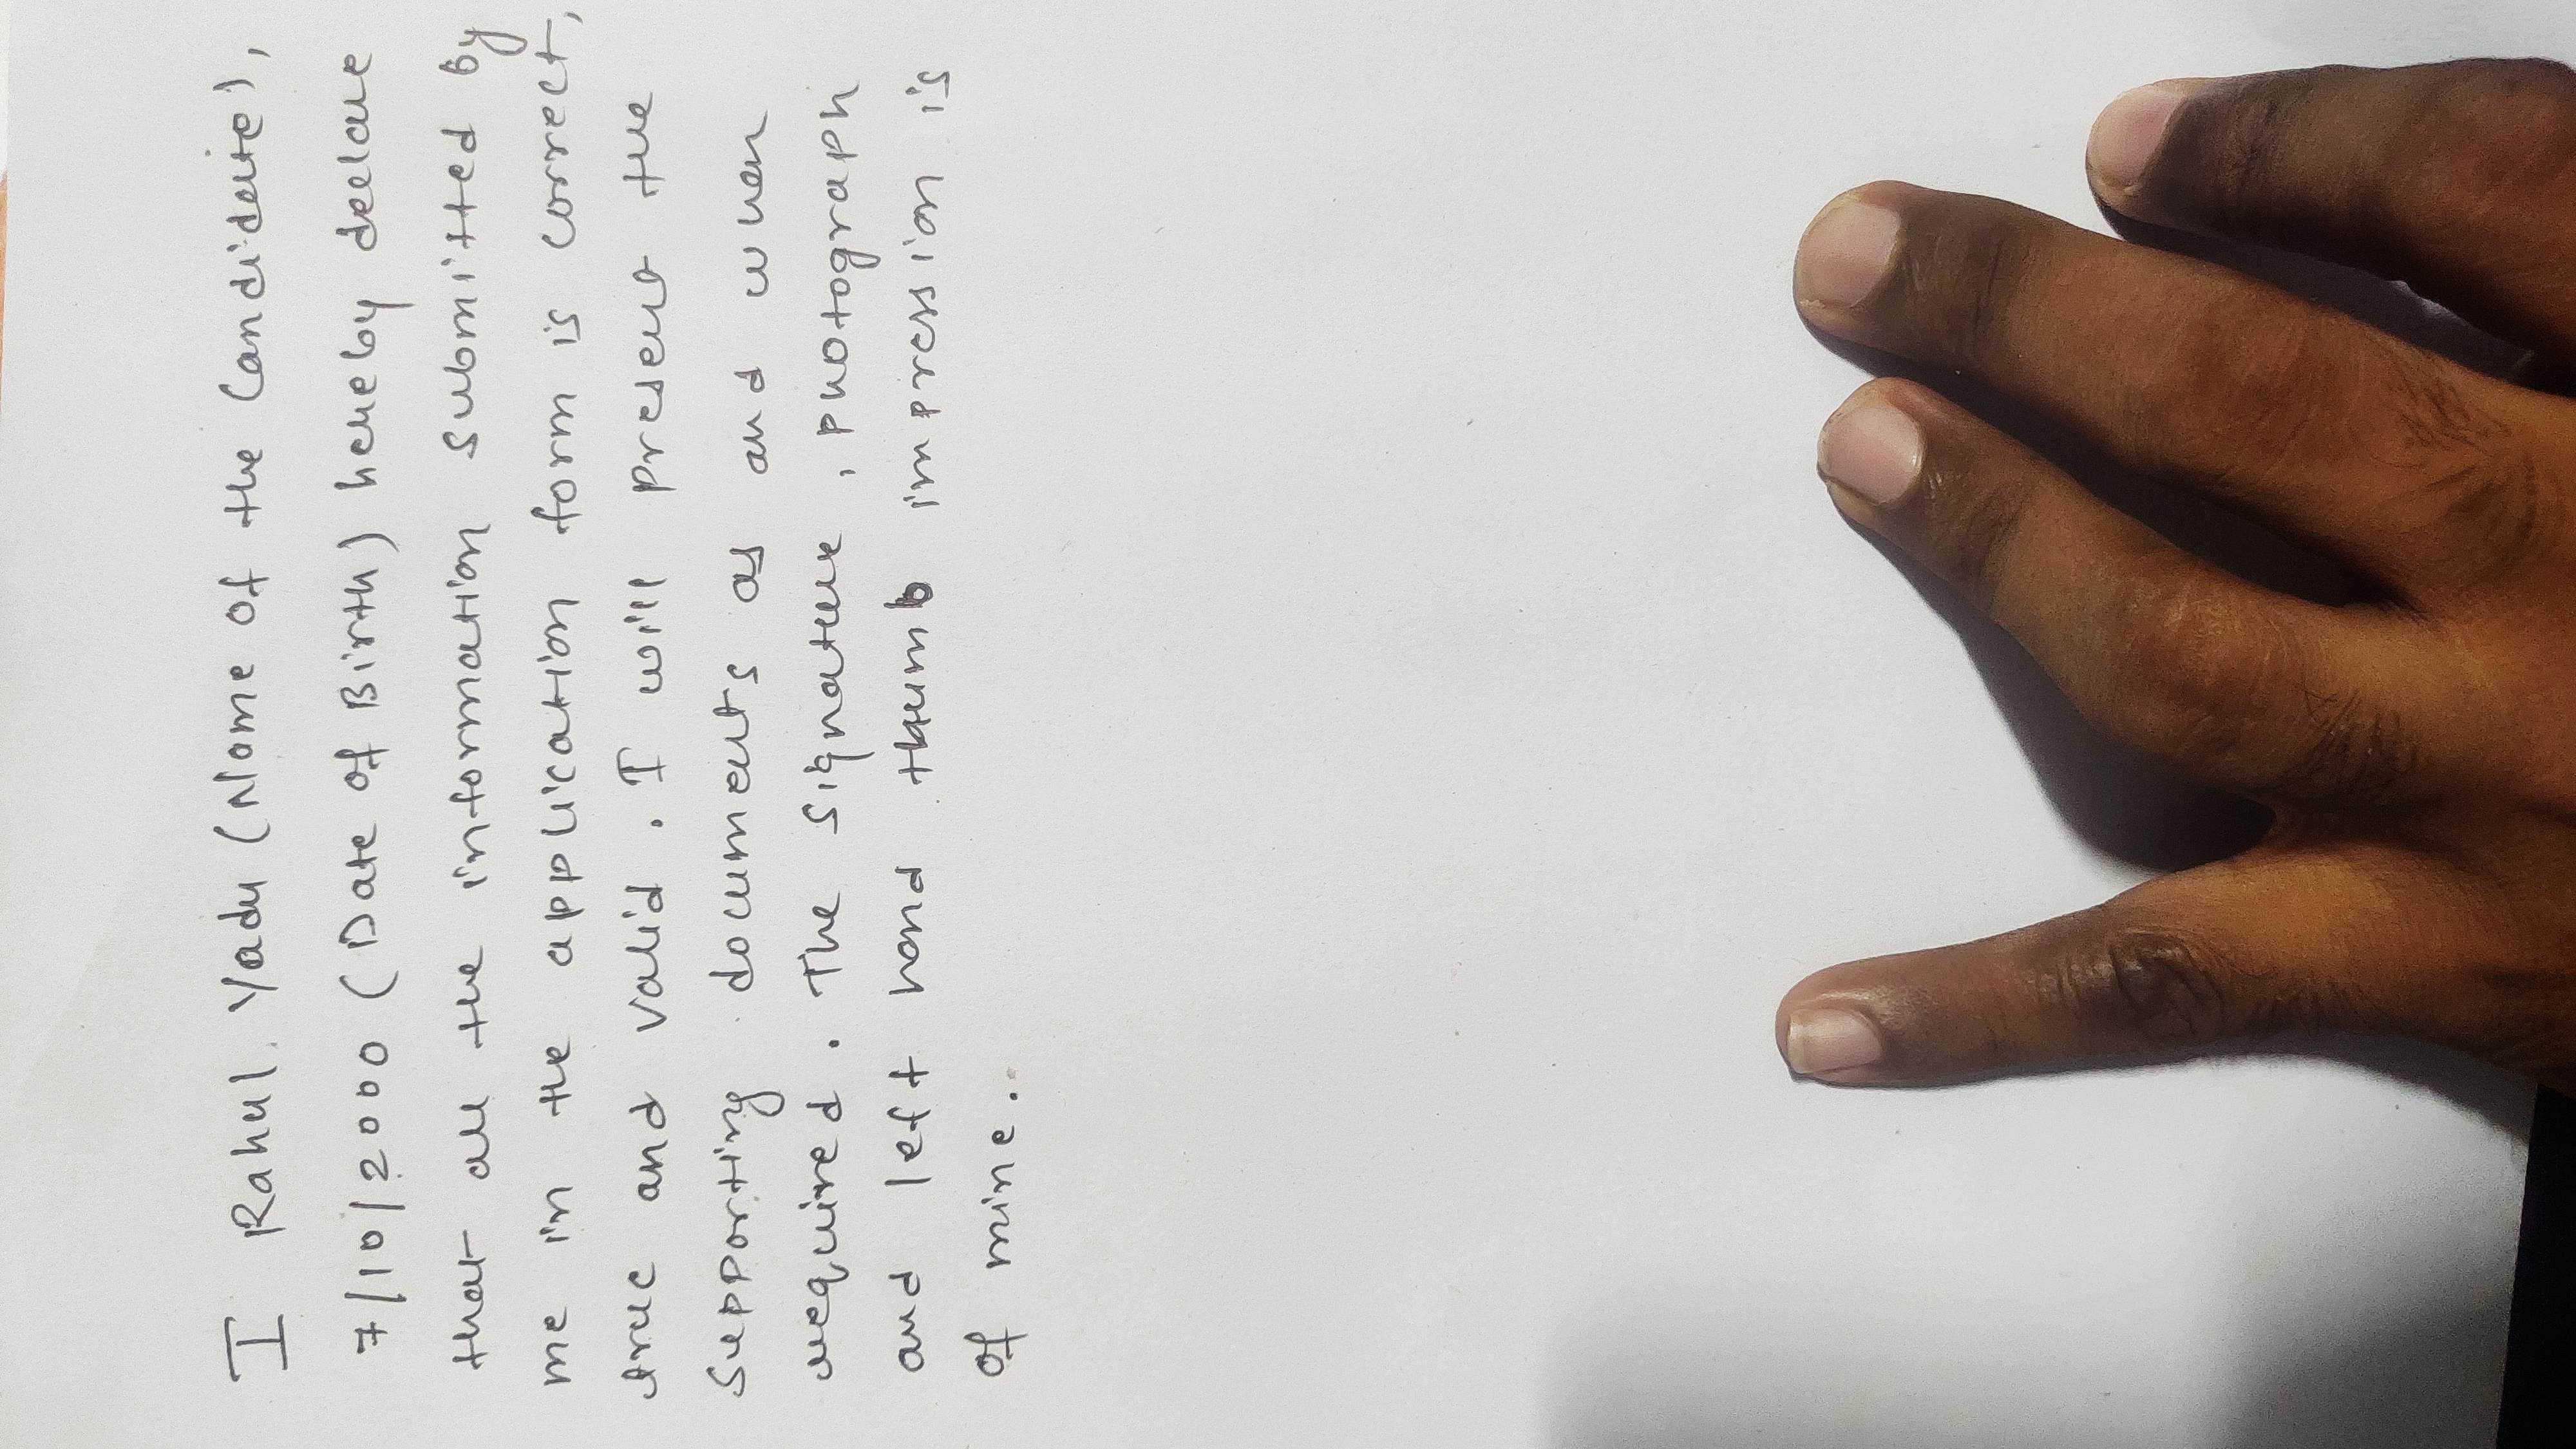 I Rahul Yadu (Name of the Candidate),
7/10/2000 (Date of Birth) hereby declare
that all the information submitted by
me in the application form is correct,
true and valid. I will present the
supporting documents as and when
required. The signature, photograph
and left hand thumb impression is
of mine.